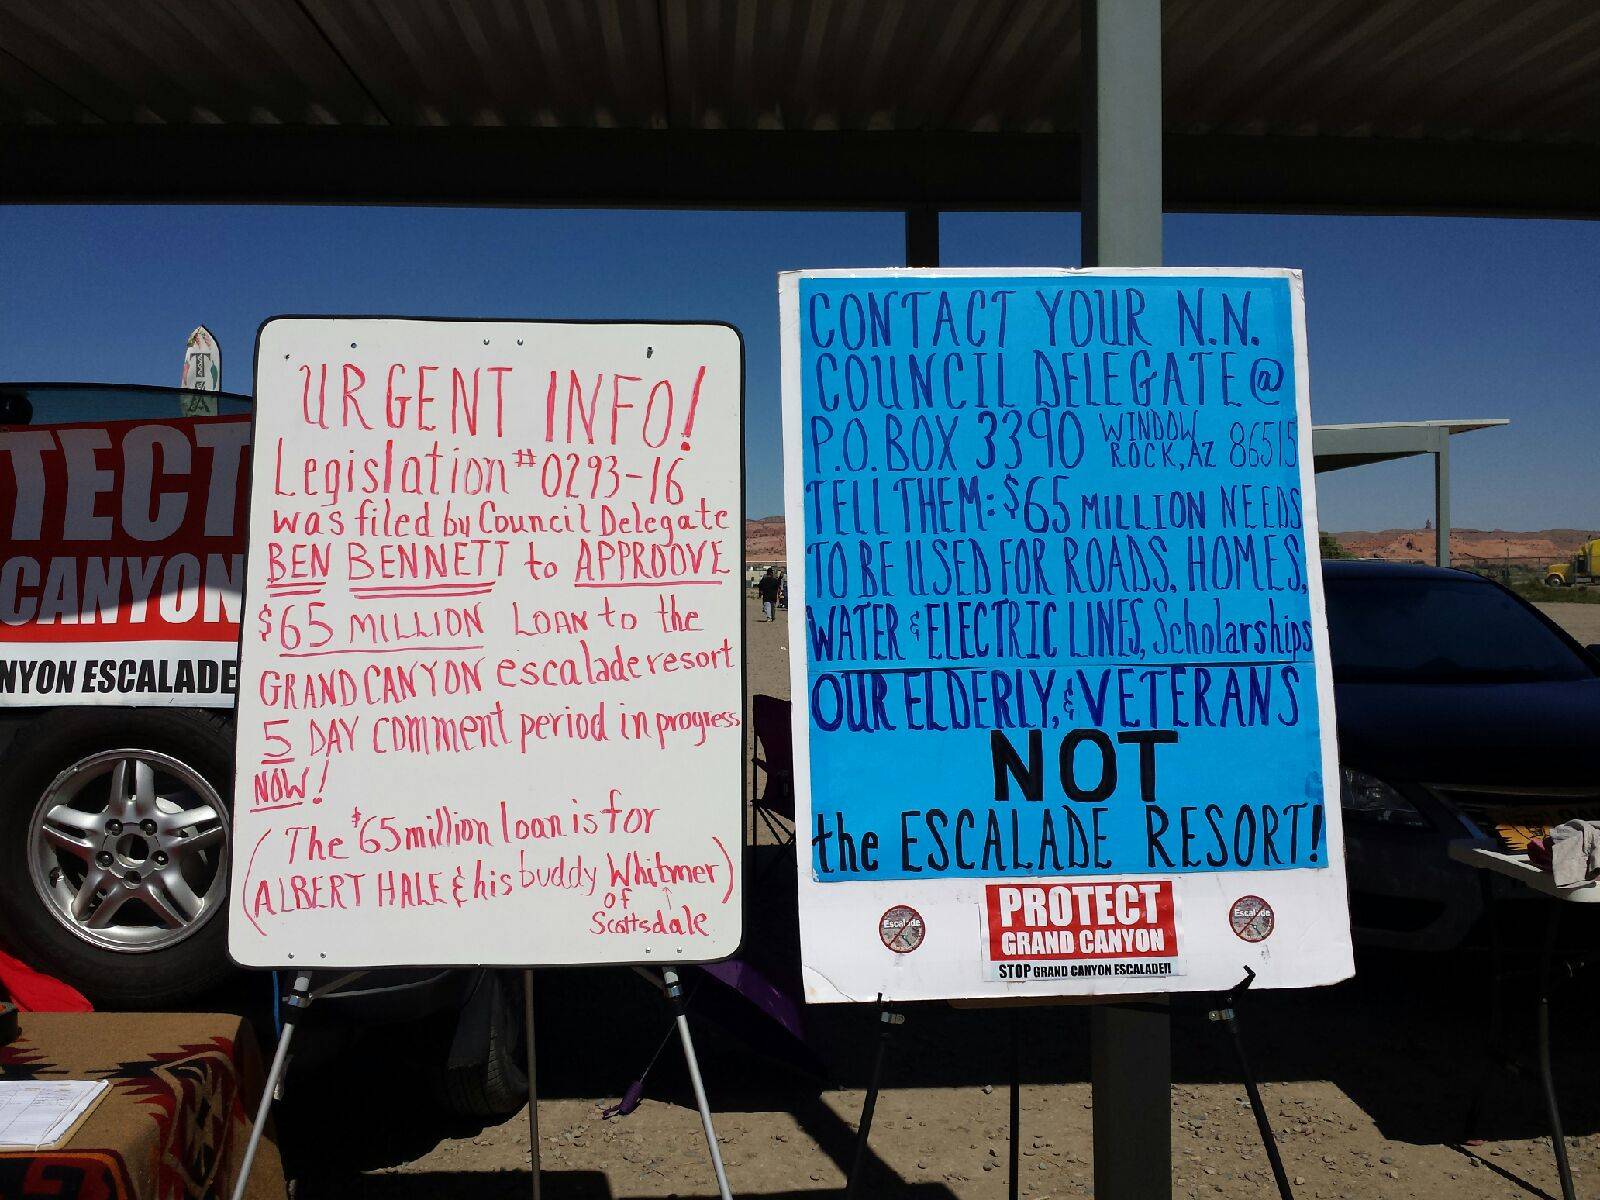 TECT
CANYON
NYON ESCALADE
URGENT INFO!
Legislation #0293-16
was filed by Council Delegate
BEN BENNETT to APPROOVE
$65 MILLION LOAN to the
GRAND CANYON escalade resort
5 DAY comment period in progress
NOW!
(The $65 million loan is for
ALBERT HALE & his buddy Whitmer)
of
Scottsdale
CONTACT YOUR N.N.
COUNCIL DELEGATE @
P.O. BOX 3390 WINDOW ROCK, AZ 86515
TELL THEM: $65 MILLION NEEDS
TO BE USED FOR ROADS, HOMES,
WATER & ELECTRIC LINES, Scholarships
OUR ELDERLY, & VETERANS
NOT
the ESCALADE RESORT!
Escalade
PROTECT
GRAND CANYON
STOP GRAND CANYON ESCALADE!!
Escalade